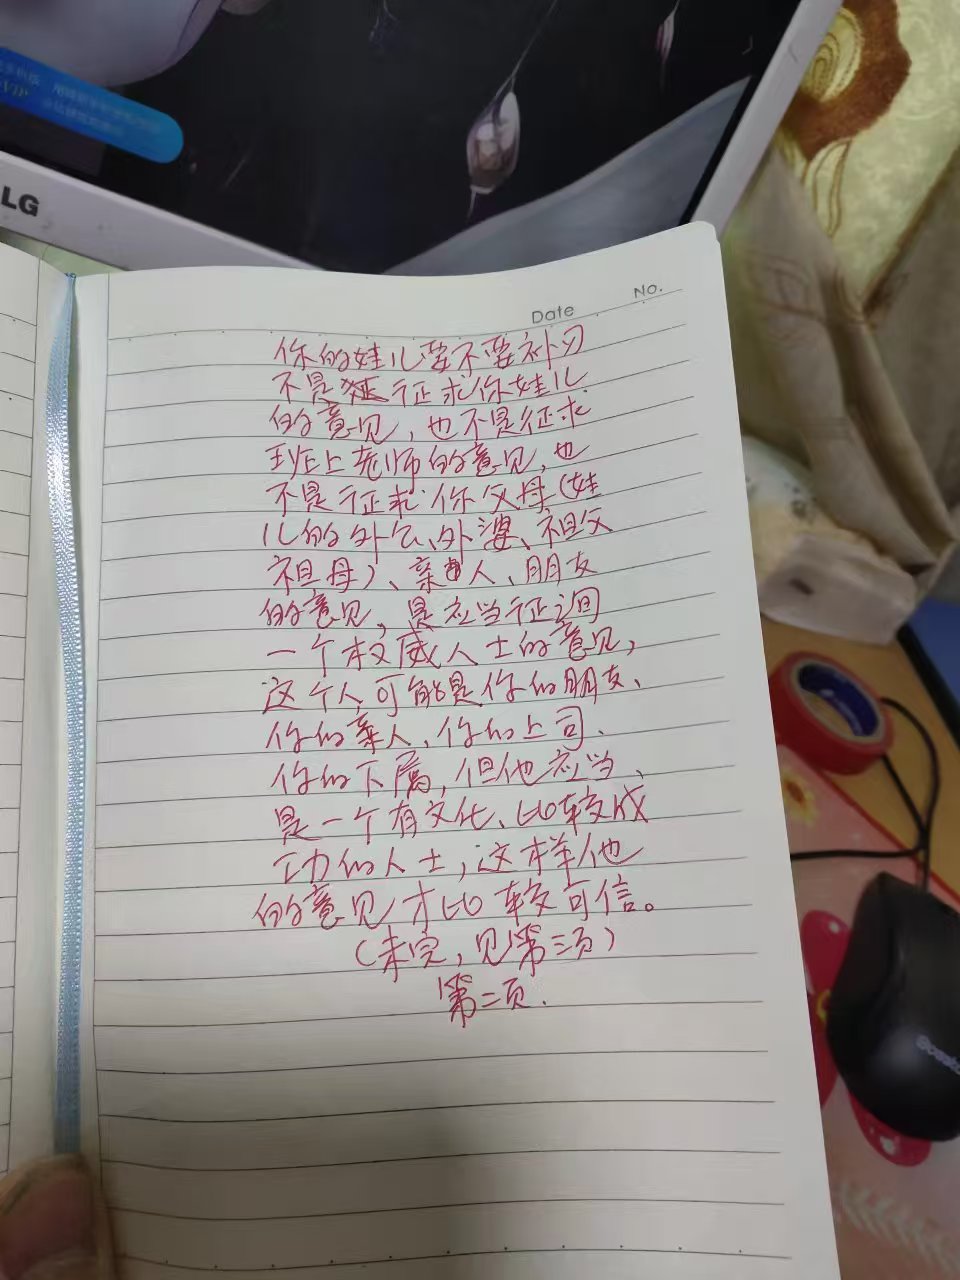 LG
Date No.
你的娃儿要不要补习
不是征求你娃儿
的意见，也不是征求
班上老师的意见，也
不是征求你父母（娃
儿的外公、外婆、祖父
祖母）、亲人、朋友
的意见，是应当征询
一个权威人士的意见，
这个人可能是你的朋友、
你的亲人、你的上司、
你的下属，但他应当
是一个有文化、比较成
功的人士，这样他
的意见才比较可信。
（未完，见第三页）
第二页.